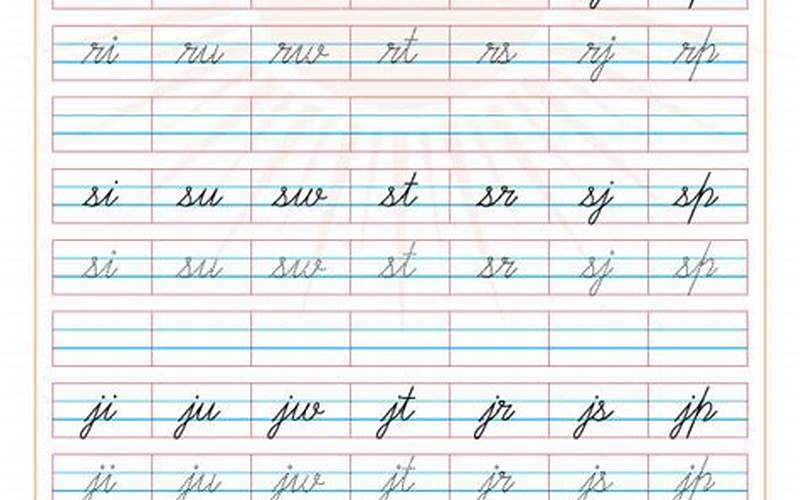 ri ru rw rt rs rj rp
si su sw st sr sj sp
si su sw st sr sj sp
ji ju jw jt jr js jp
ji ju jw jt jr js jp